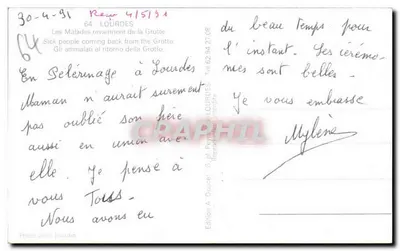 30-4-91
Reçu 4/5/91
64 LOURDES
64
Les Malades reviennent de la Grotte
Sick people coming back from the Grotto
Gli ammalati al ritorno della Grotta
En Pélerinage à Lourdes
Maman n'aurait surement
pas oublié son frère
aussi en union avec
elle. Je pense à
vous Tous.
Nous avons eu
du beau temps pour
l'instant. Les cérémo-
nies sont belles.
Je vous embrasse
Mylène
CPAPHIL.com